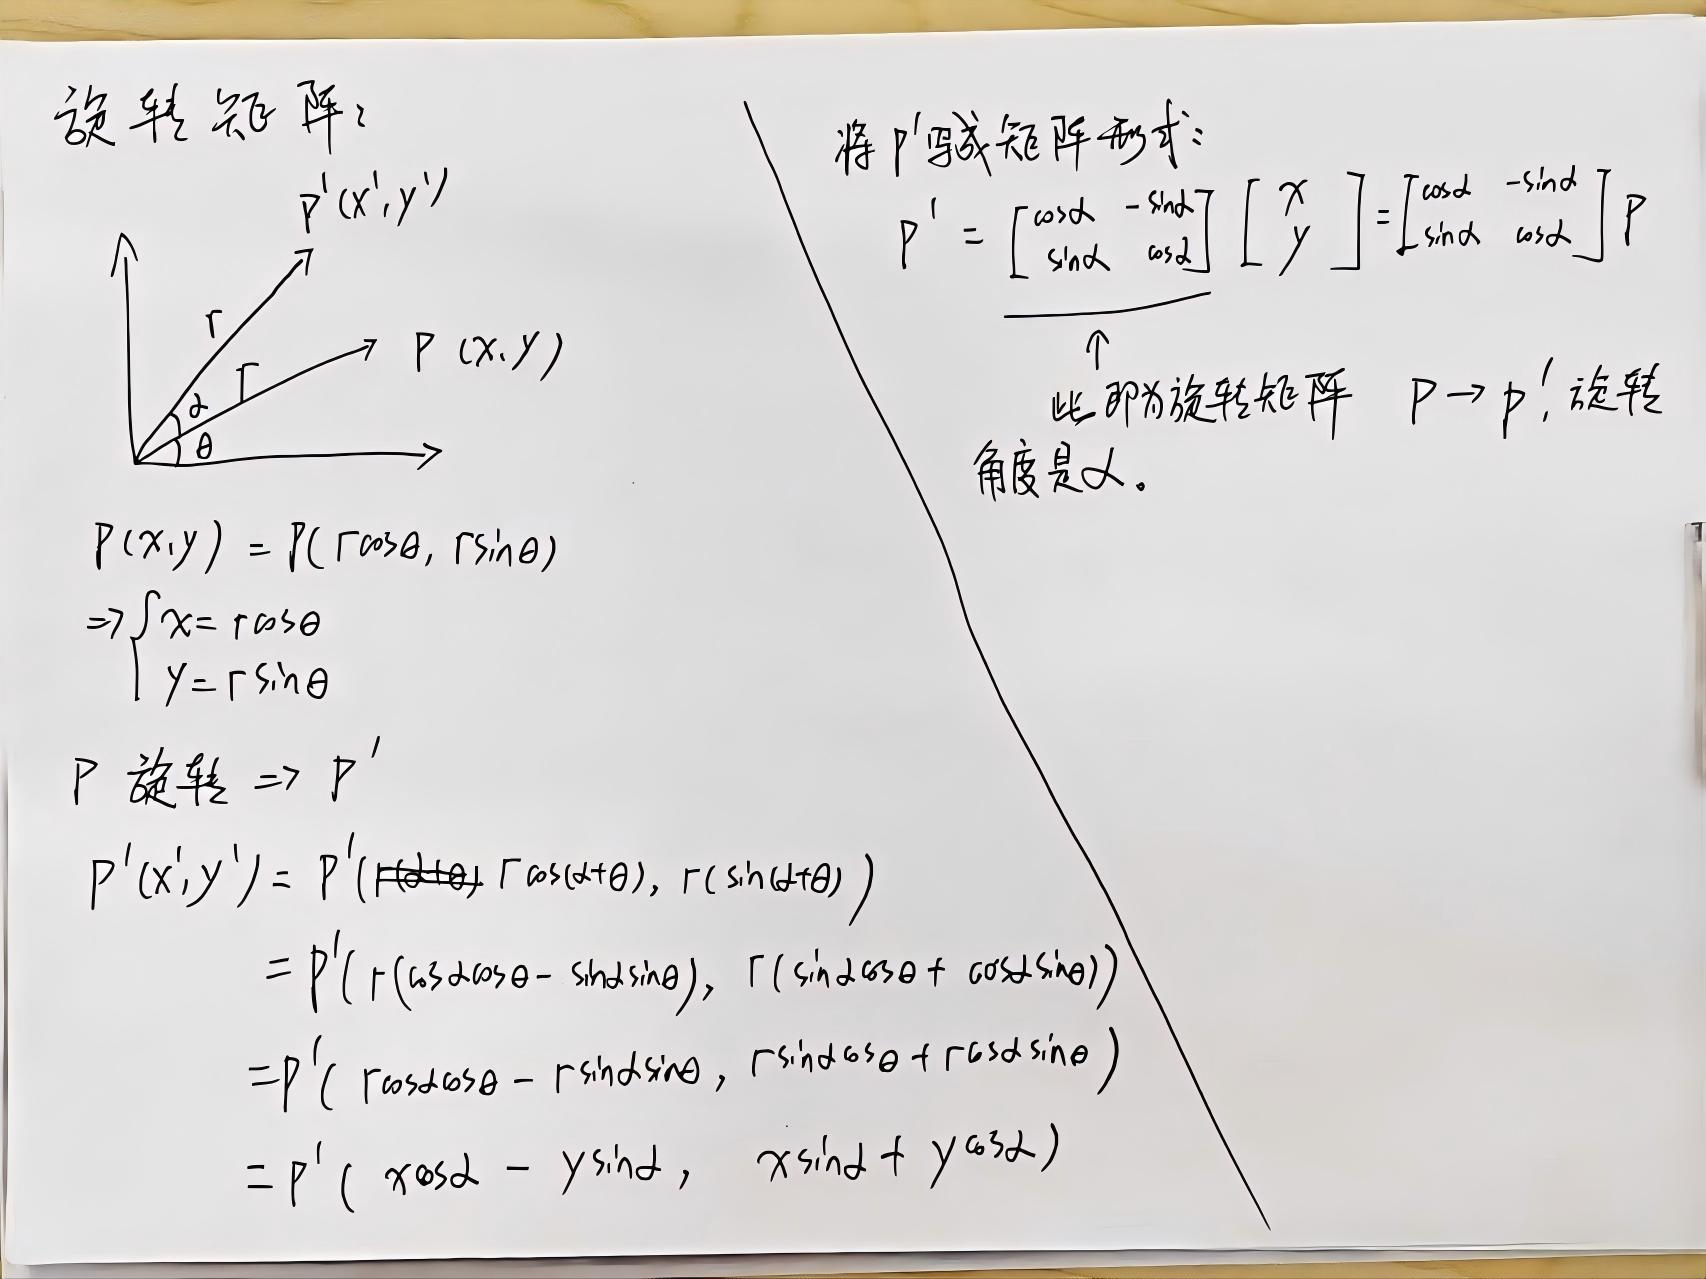 旋转矩阵:
P'(x',y')
r
r
P (x,y)
α
θ
P(x,y) = P(rcosθ, rsinθ)
=> { x = rcosθ
y = rsinθ
P 旋转 => P'
P'(x',y') = P'( rcos(α+θ), r(sin(α+θ))
= P'(r(cosαcosθ - sinαsinθ), r(sinαcosθ + cosαsinθ))
= P'( rcosαcosθ - rsinαsinθ, rsinαcosθ + rcosαsinθ )
= P'( xcosα - ysinα, xsinα + ycosα)
将P'写成矩阵形式:
P' = [cosα -sinα; sinα cosα] [x; y] = [cosα -sinα; sinα cosα] P
↑
此即为旋转矩阵 P→P', 旋转
角度是α。